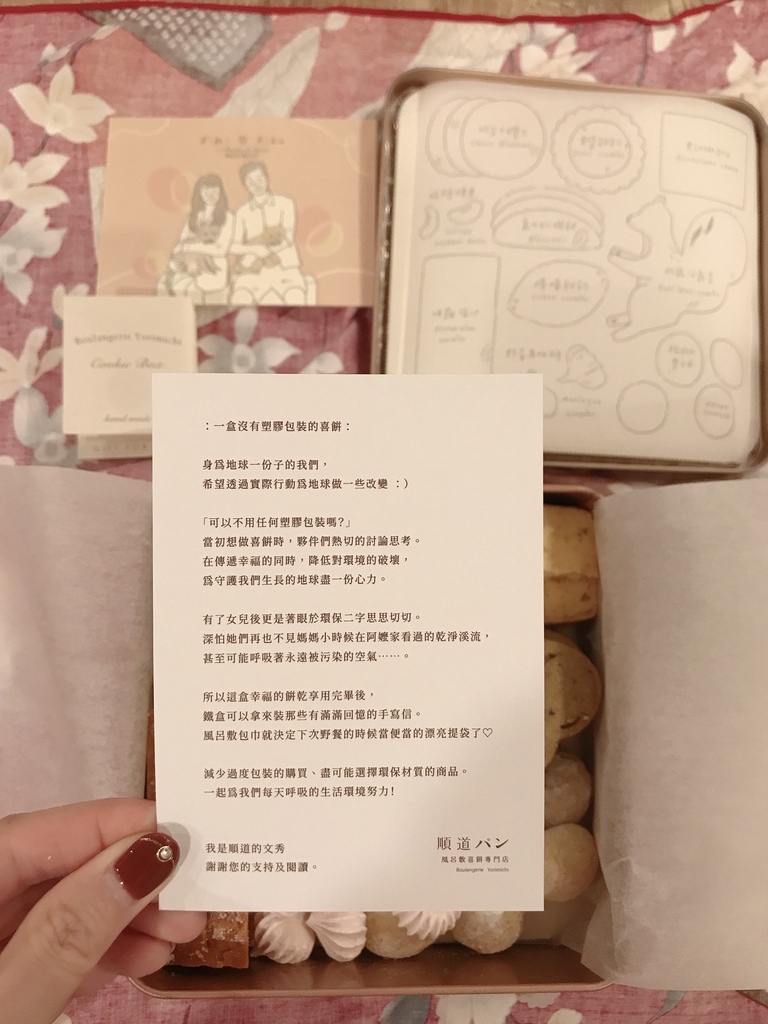 Boulangerie Yorimichi
Cookie Box
：一盒沒有塑膠包裝的喜餅：
身為地球一份子的我們，
希望透過實際行動為地球做一些改變 ：）
「可以不用任何塑膠包裝嗎?」
當初想做喜餅時，夥伴們熱切的討論思考。
在傳遞幸福的同時，降低對環境的破壞，
為守護我們生長的地球盡一份心力。
有了女兒後更是著眼於環保二字思思切切。
深怕她們再也不見媽媽小時候在阿嬤家看過的乾淨溪流，
甚至可能呼吸著永遠被污染的空氣……。
所以這盒幸福的餅乾享用完畢後，
鐵盒可以拿來裝那些有滿滿回憶的手寫信。
風呂敷包巾就決定下次野餐的時候當便當的漂亮提袋了♡
減少過度包裝的購買、盡可能選擇環保材質的商品。
一起為我們每天呼吸的生活環境努力!
我是順道的文秀
謝謝您的支持及閱讀。
順道パン
風呂敷喜餅專門店
Boulangerie Yorimichi